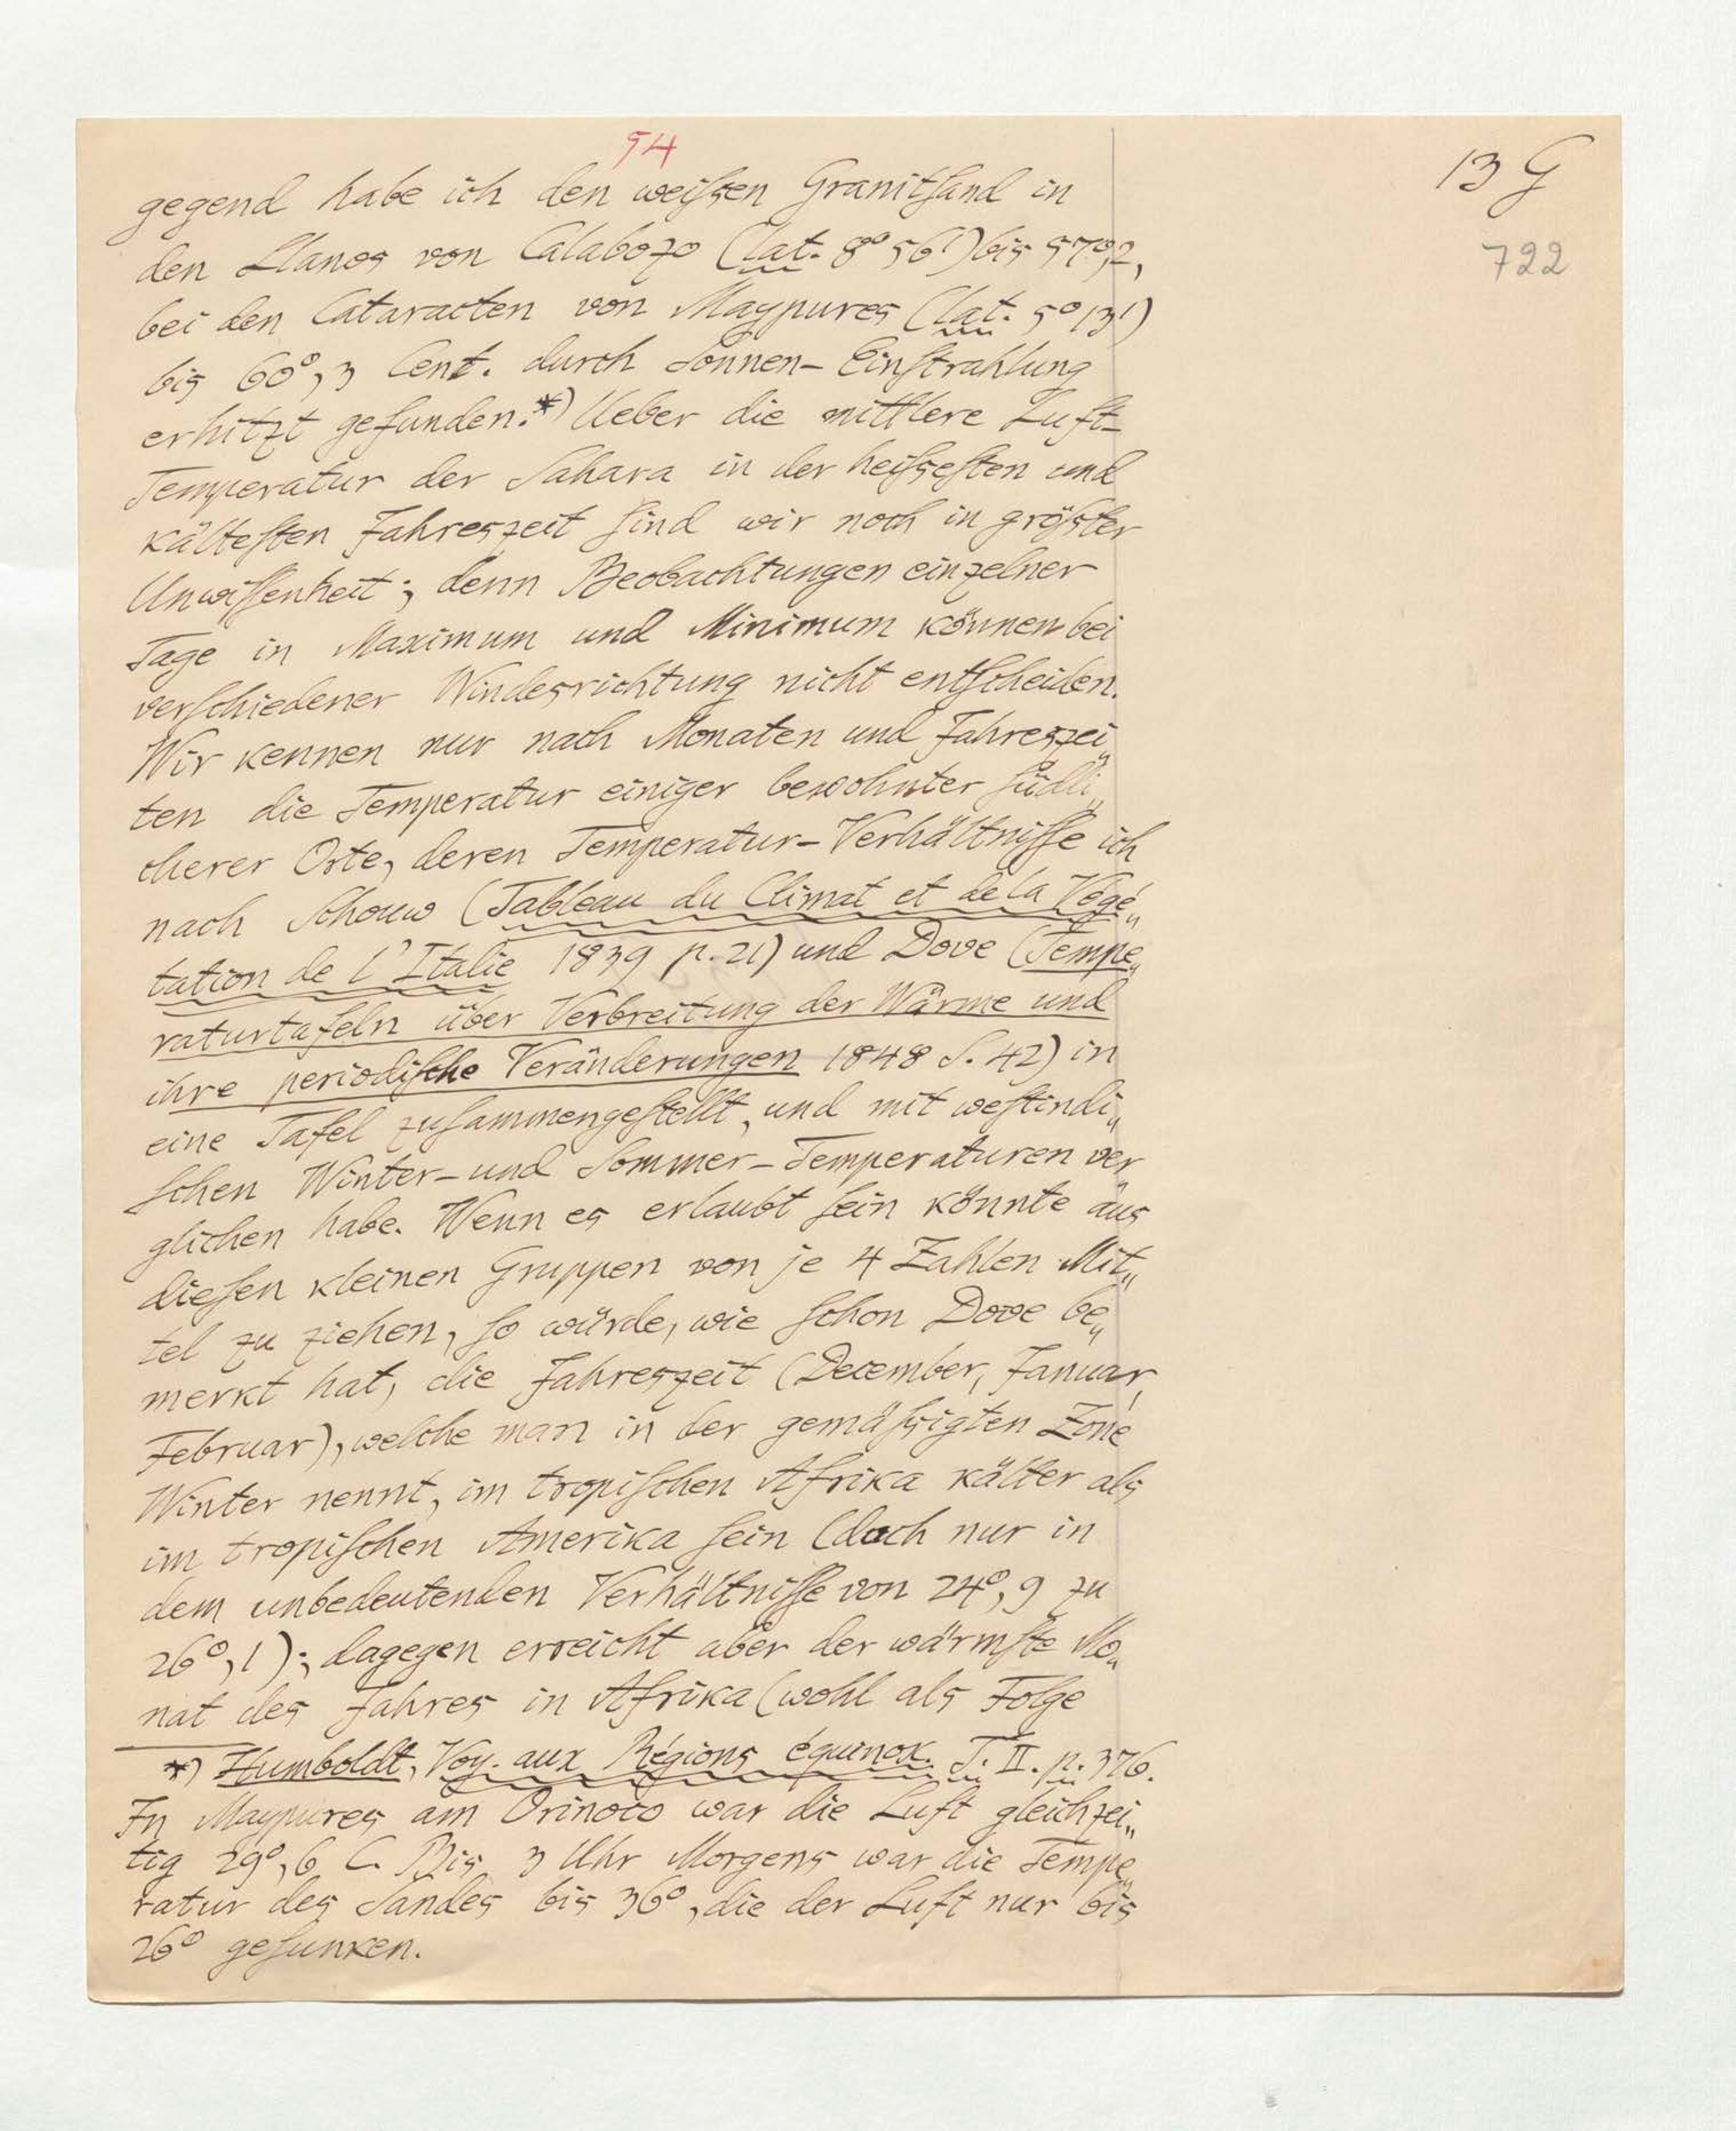 54
13 G
722
gegend habe ich den weißen Granitsand in
den Llanos von Calabozo (lat. 8° 56') bis 57°,2,
bei den Cataracten von Maypures (lat. 5° 13')
bis 60°,3 Cent. durch Sonnen-Einstrahlung
erhitzt gefunden.*) Ueber die mittlere Luft-
Temperatur der Sahara in der heißesten und
kältesten Jahreszeit sind wir noch in größter
Unwissenheit; denn Beobachtungen einzelner
Tage in Maximum und Minimum können bei
verschiedener Windesrichtung nicht entscheiden.
Wir kennen nur nach Monaten und Jahreszei„
ten die Temperatur einiger bewohnter südli„
cherer Orte, deren Temperatur-Verhältnisse ich
nach Schouw (Tableau du Climat et de la Végé„
tation de l'Italie 1839 p. 21) und Dove (Tempe„
raturtafeln über Verbreitung der Wärme und
ihre periodische Veränderungen 1848 S. 42) in
eine Tafel zusammengestellt, und mit westindi„
schen Winter- und Sommer-Temperaturen ver„
glichen habe. Wenn es erlaubt sein könnte aus
diesen kleinen Gruppen von je 4 Zahlen Mit„
tel zu ziehen, so würde, wie schon Dove be„
merkt hat, die Jahreszeit (December, Januar,
Februar), welche man in der gemäßigten Zone
Winter nennt, im tropischen Afrika kälter als
im tropischen Amerika sein (doch nur in
dem unbedeutenden Verhältnisse von 24°,9 zu
26°,1); dagegen erreicht aber der wärmste Mo„
nat des Jahres in Afrika (wohl als Folge
*) Humboldt, Voy. aux Régions équinox. T. II. p. 376.
In Maypures am Orinoco war die Luft gleichzei„
tig 29°,6 C. Bis 3 Uhr Morgens war die Tempe„
ratur des Sandes bis 36°, die der Luft nur bis
26° gesunken.